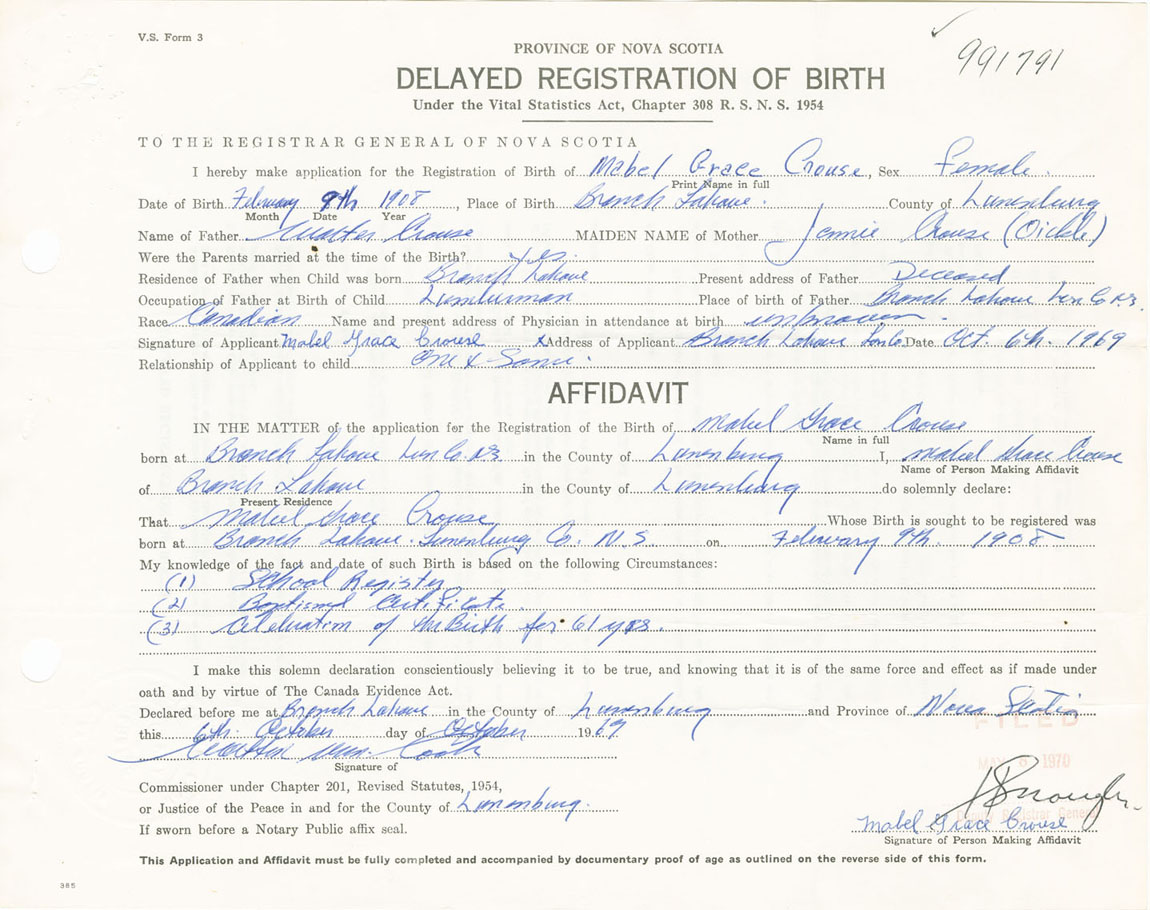 V.S. Form 3
991791
PROVINCE OF NOVA SCOTIA
DELAYED REGISTRATION OF BIRTH
Under the Vital Statistics Act, Chapter 308 R. S. N. S. 1954
TO THE REGISTRAR GENERAL OF NOVA SCOTIA
I hereby make application for the Registration of Birth of Mabel Grace Crouse, Sex Female.
Print Name in full
Date of Birth February 9th 1908, Place of Birth Branch Lahave. County of Lunenburg
Month Date Year
Name of Father Crouse MAIDEN NAME of Mother Jennie Crouse (Oickle)
Were the Parents married at the time of the Birth? Yes.
Residence of Father when Child was born Branch Lahave Present address of Father Deceased
Occupation of Father at Birth of Child Lumberman Place of birth of Father Branch Lahave Lun Co NS
Race Canadian Name and present address of Physician in attendance at birth unknown.
Signature of Applicant Mabel Grace Crouse X Address of Applicant Branch Lahave Lun Co Date Oct. 6th. 1969
Relationship of Applicant to child One & Same.
AFFIDAVIT
IN THE MATTER of the application for the Registration of the Birth of Mabel Grace Crouse
Name in full
born at Branch Lahave Lun Co. NS in the County of Lunenburg I, Mabel Grace Crouse
Name of Person Making Affidavit
of Branch Lahave in the County of Lunenburg do solemnly declare:
Present Residence
That Mabel Grace Crouse Whose Birth is sought to be registered was
born at Branch Lahave. Lunenburg Co. N.S. on February 9th. 1908
My knowledge of the fact and date of such Birth is based on the following Circumstances:
(1) School Register
(2) Baptismal Certificate.
(3) Celebration of Birth for 61 yrs.
I make this solemn declaration conscientiously believing it to be true, and knowing that it is of the same force and effect as if made under
oath and by virtue of The Canada Evidence Act.
Declared before me at Branch Lahave in the County of Lunenburg and Province of Nova Scotia
this 6th. October day of October 1969
FILED
MAY 1970
Signature of
Commissioner under Chapter 201, Revised Statutes, 1954,
or Justice of the Peace in and for the County of Lunenburg.
Mabel Grace Crouse
If sworn before a Notary Public affix seal.
Signature of Person Making Affidavit
This Application and Affidavit must be fully completed and accompanied by documentary proof of age as outlined on the reverse side of this form.
385